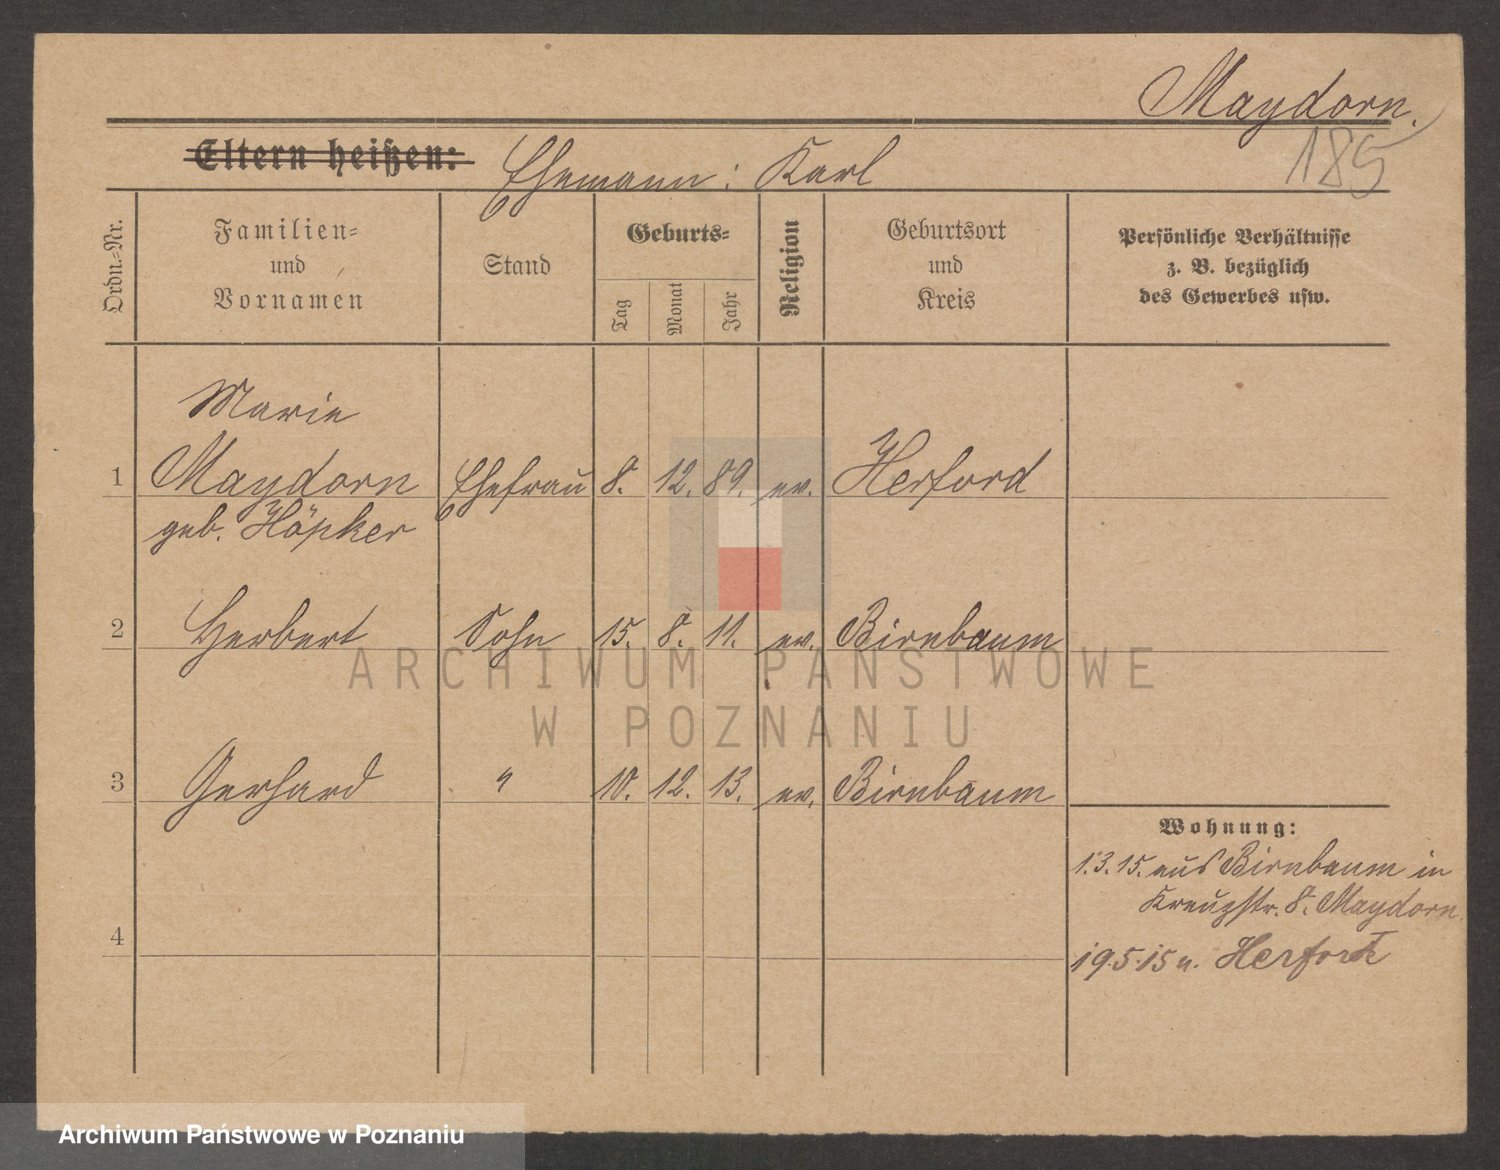 Maydorn.
185
Eltern heißen: Ehemann: Karl
Ordn.-Nr.
Familien-
und
Vornamen
Stand
Geburts-
Tag
Monat
Jahr
Religion
Geburtsort
und
Kreis
Persönliche Verhältnisse
z. B. bezüglich
des Gewerbes usw.
Marie
1 Maydorn Ehefrau 8. 12. 89. ev. Herford
geb. Höpker
2 Herbert Sohn 15. 8. 11. ev. Birnbaum
ARCHIWUM PAŃSTWOWE
W POZNANIU
3 Gerhard " 10. 12. 13. ev. Birnbaum
Wohnung:
1.3.15. aus Birnbaum in
Kreuzstr. 8. Maydorn
4
19.5.15 n. Herford
Archiwum Państwowe w Poznaniu